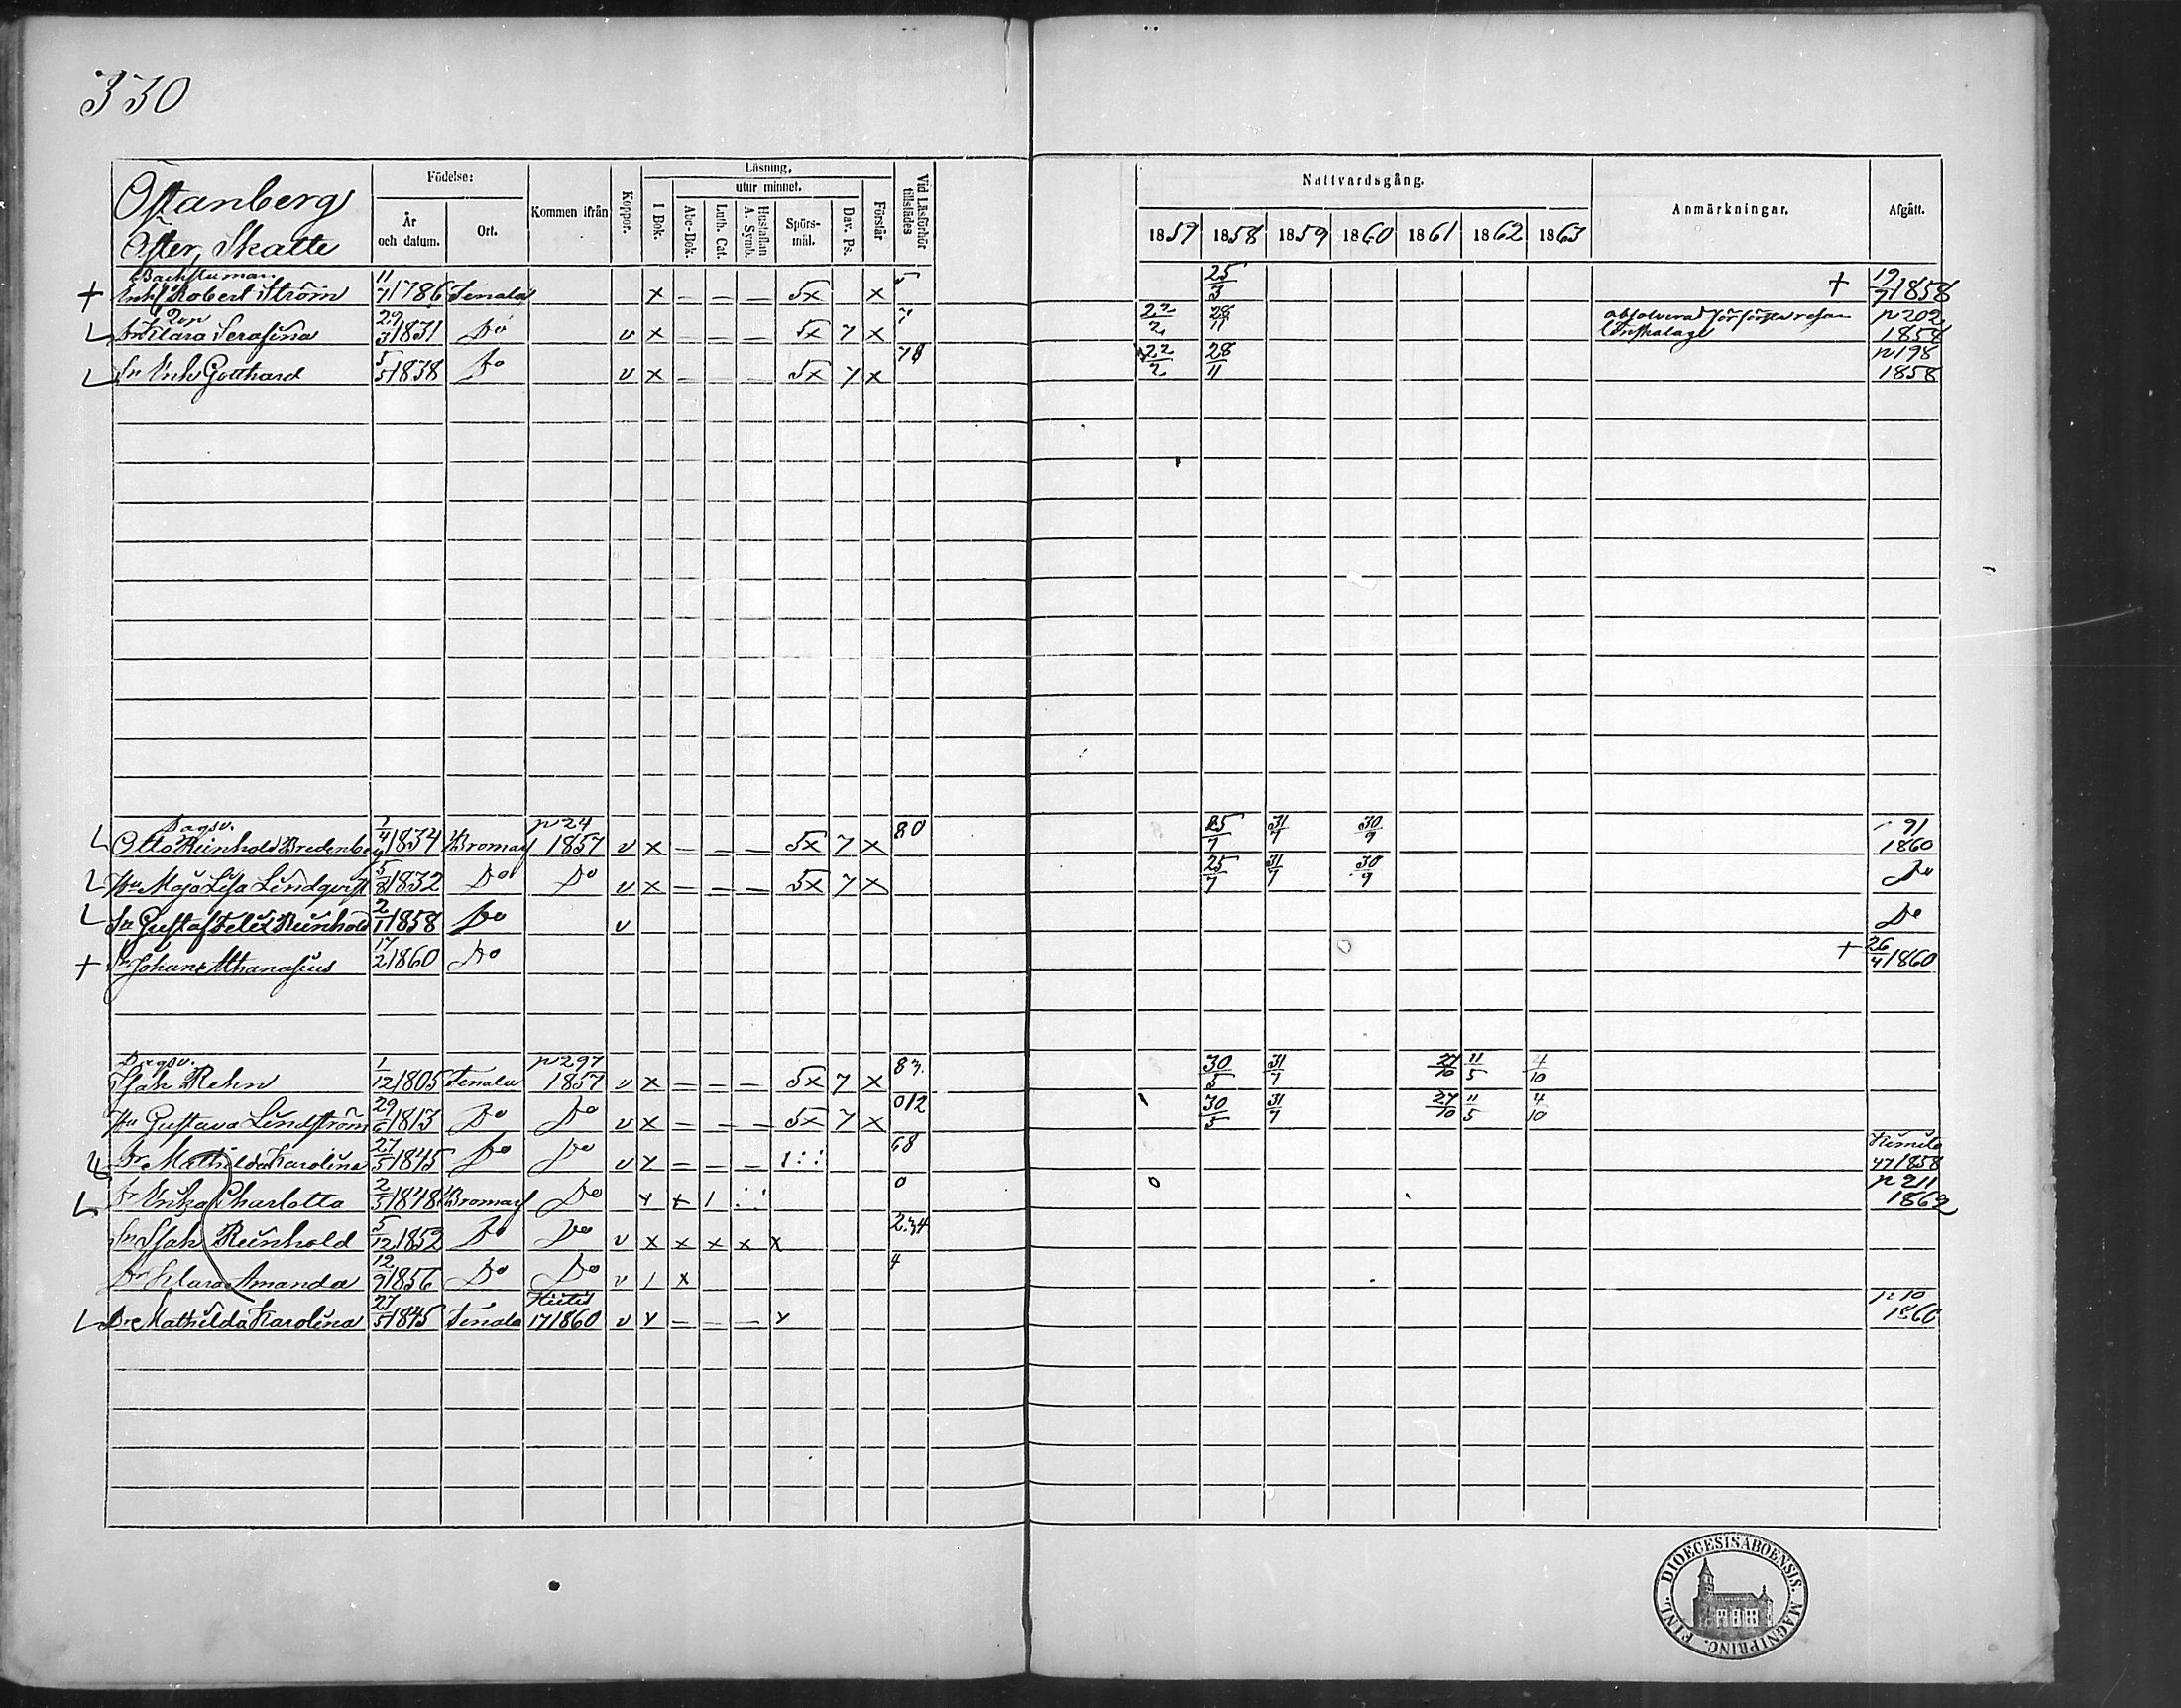 330
Östanberg
Öfter, Skatte
Födelse:
År och datum.
Ort.
Kommen ifrån
Koppor.
Läsning,
I Bok.
utur minnet.
Abc-Bok.
Luth. Cat.
Hustaflan A. Symb.
Spörs-mål.
Dav. Ps.
Förstår
Vid Läsförhör tillstädes
Nattvardsgång.
1857 1858 1859 1860 1861 1862 1863
Anmärkningar.
Afgått.
Backstuman
+ Enkl Robert Ström 11/7 1786 Tenala x — — — 5x x 5 25/3 + 19/7 1858
L Dr Klara Serafina 29/3 1831 Do v x — — — 5x 7 x 7 22/2 28/11 absolverad för första resan p 202 1858
L Sn Erik Gotthard 5/5 1838 Do v x — — — 5x 7 x 78 22/2 28/11 p 198 1858
Dagsv.
L Otto Reinhold Bredenberg 1/4 1834 Bromarf p 24 1857 v x — — — 5x 7 x 80 25/7 31/7 30/9 91 1860
L Hu Maja Lisa Lindqvist 5/8 1832 Do Do v x — — — 5x 7 x 25/7 31/7 30/9 Do
L Sn Gustaf Felix Reinhold 2/1 1858 Do v Do
+ Sn Johan Athanasius 17/2 1860 Do + 26/4 1860
Dagsv.
Isak Rehn 1/12 1805 Tenala p 297 1857 v x — — — 5x 7 x 83. 30/5 31/7 27/10 11/5 4/10
Hu Gustava Lindström 29/6 1813 Do Do v x — — — 5x 7 x 012 30/5 31/7 27/10 11/5 4/10
Dr Mathilda Karolina 27/5 1845 Do Do v x — — — 1 : : 68 Kimito 47 1858
L Dr Erika Charlotta 2/5 1848 Bromarf Do x x 1 : : 0 0 p 211 1862
Sn Isak Reinhold 5/12 1852 Do Do v x x x x x 2.34
Dr Klara Amanda 12/9 1856 Do Do v 1 x 4
L Dr Mathilda Karolina 27/5 1845 Tenala Hitis 17 1860 v x — — — x p 10 1860
DIOECESIS ABOENSIS. MAGNI PRINC. FINL.